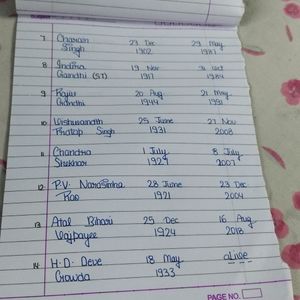 7 Charan Singh 23 Dec 1902 29 May 1987
8 Indira Gandhi (ST) 19 Nov 1917 31 Oct 1984
9 Rajiv Gandhi 20 Aug 1944 21 May 1991
10 Vishwanath Pratap Singh 25 June 1931 27 Nov 2008
11 Chandra Shekhar 1 July 1927 8 July 2007
12 P.V. Narasimha Rao 28 June 1921 23 Dec 2004
13 Atal Bihari Vajpayee 25 Dec 1924 16 Aug 2018
14 H.D. Deve Gowda 18 May 1933 alive
PAGE NO.